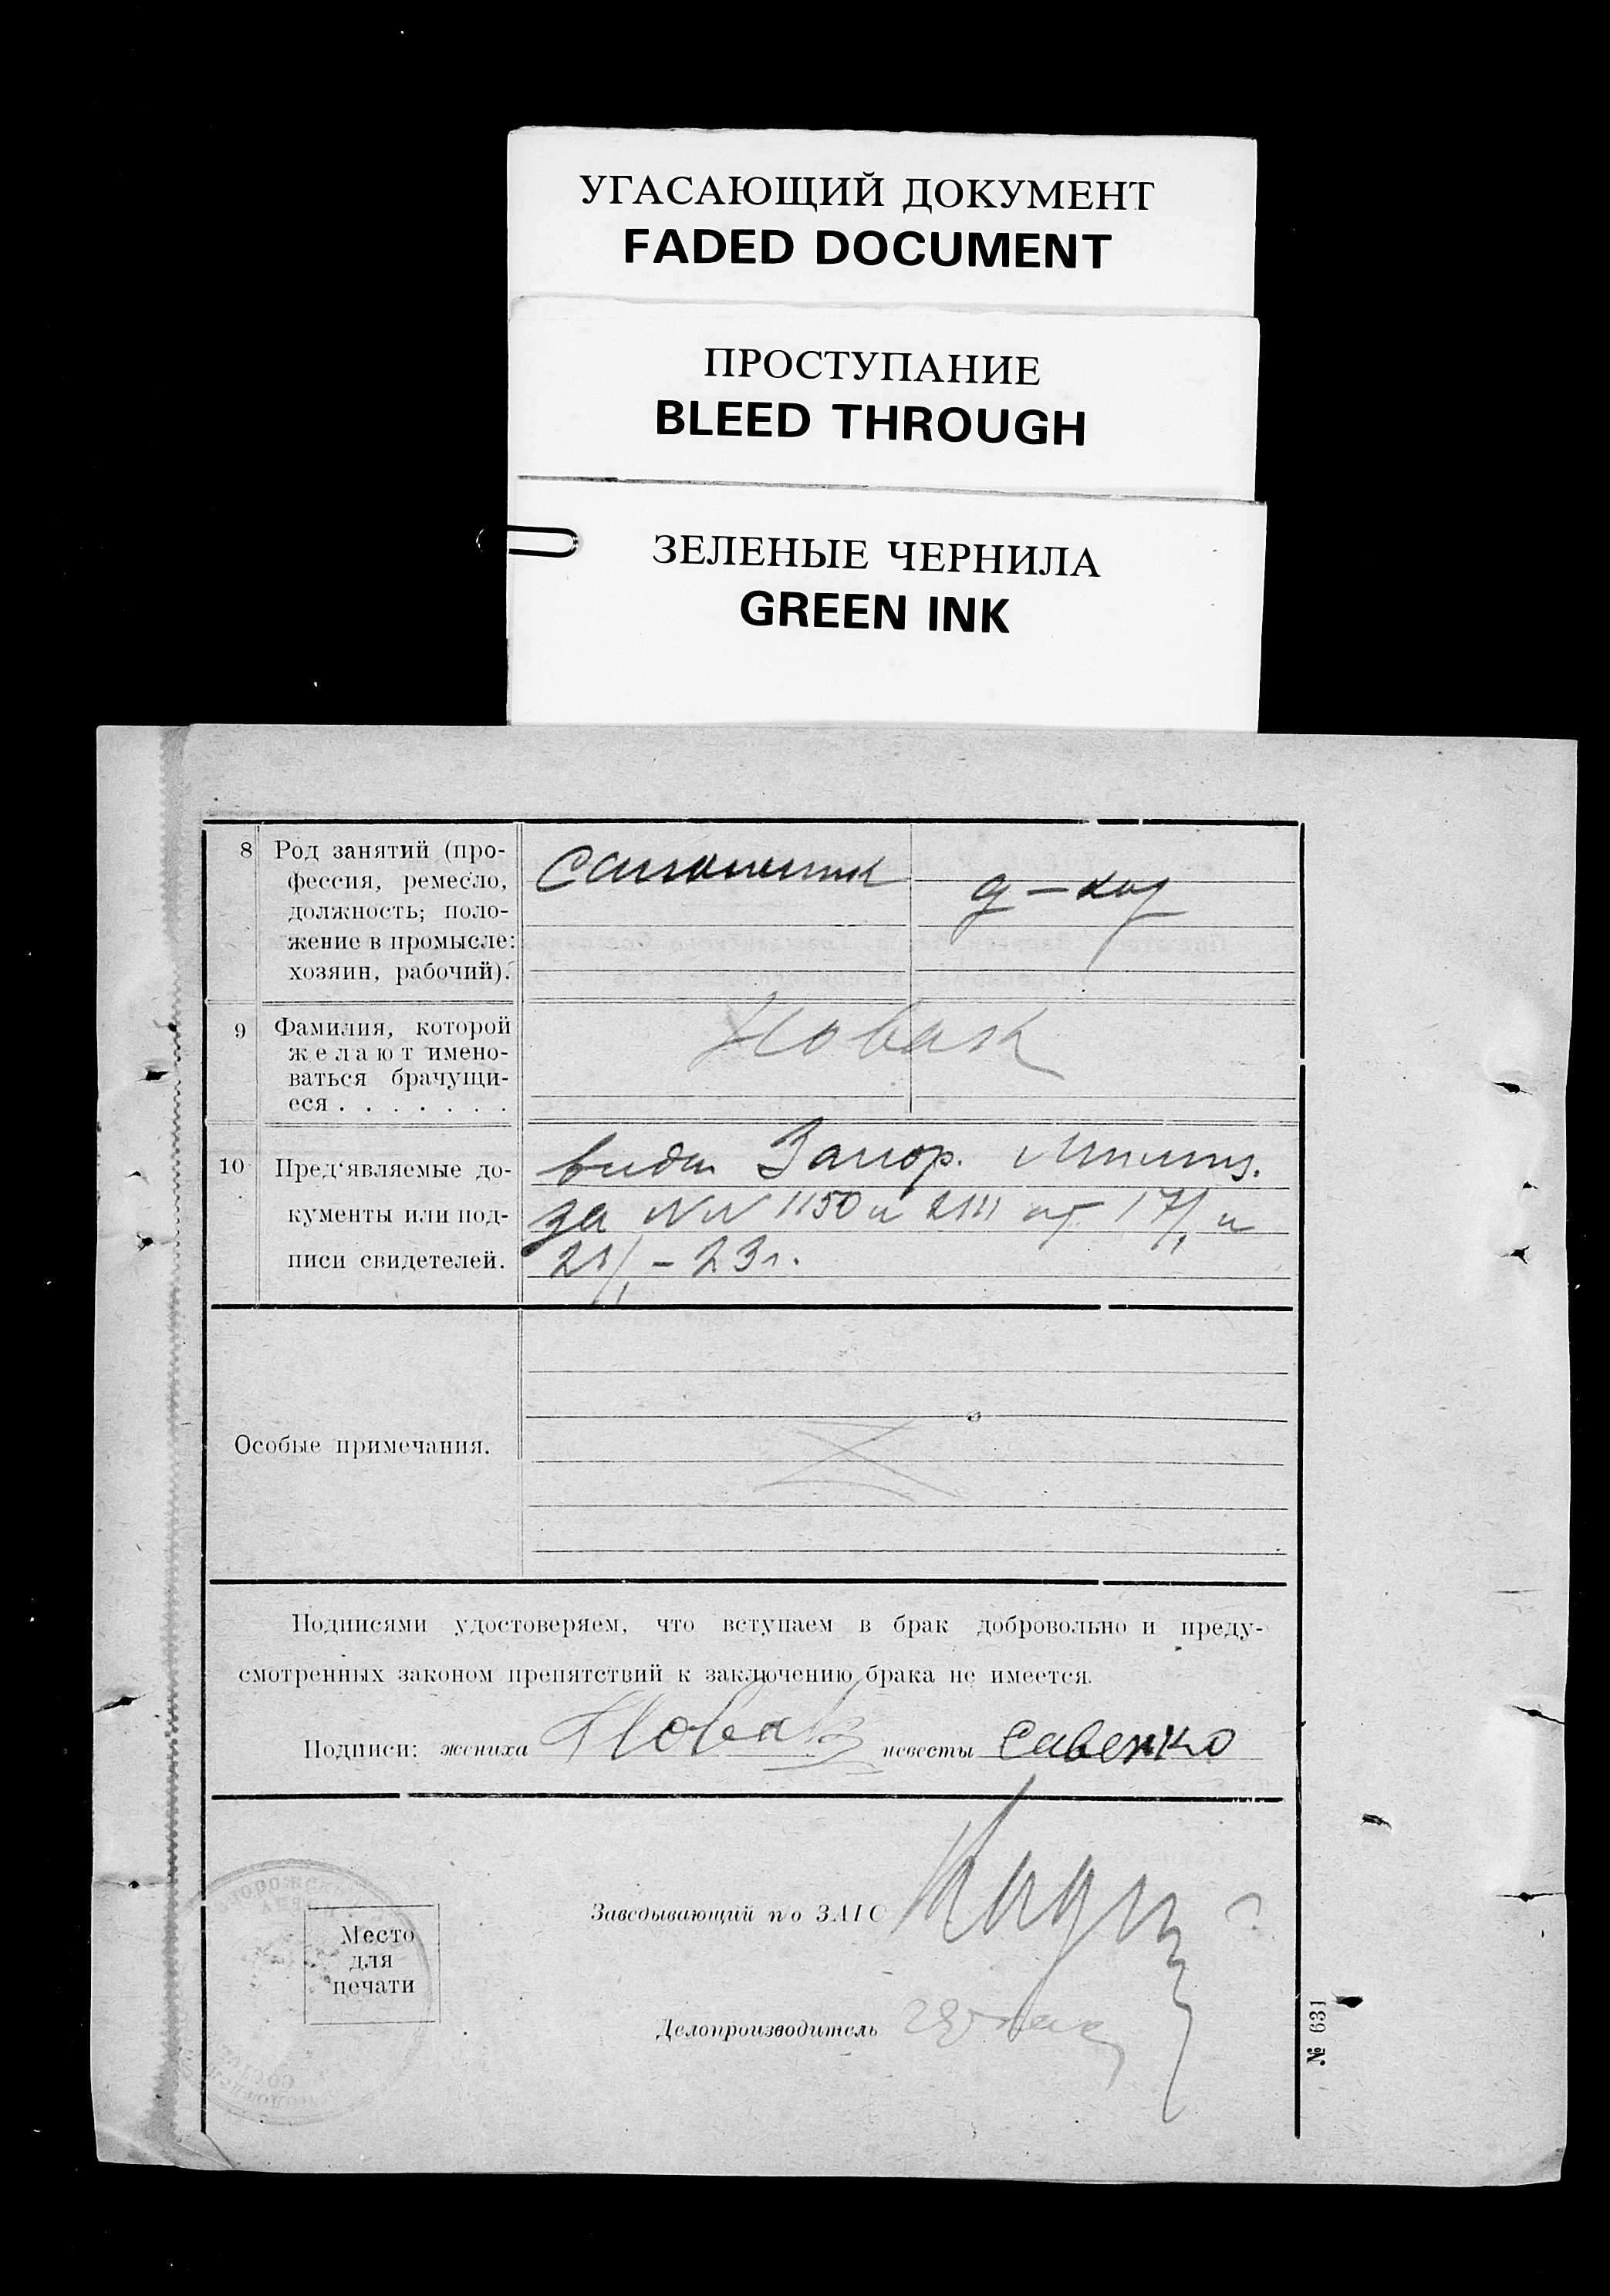 УГАСАЮЩИЙ ДОКУМЕНТ
FADED DOCUMENT
ПРОСТУПАНИЕ
BLEED THROUGH
ЗЕЛЕНЫЕ ЧЕРНИЛА
GREEN INK
8 Род занятий (про-
фессия, ремесло,
должность; поло-
жение в промысле:
хозяин, рабочий).
Сапожник
9 Фамилия, которой
желают имено-
ваться брачущи-
еся . . . . . . .
Новак
10 Пред'являемые до-
кументы или под-
писи свидетелей.
виды Запор.
за NN 1150 и 2111 от 17/1 и
21/1 – 23 г.
Особые примечания.
Подписями удостоверяем, что вступаем в брак добровольно и преду-
смотренных законом препятствий к заключению брака не имеется.
Подписи: жениха Новак невесты Савенко
Заведывающий п/о ЗАГС
Место
для
печати
Делопроизводитель
№ 631